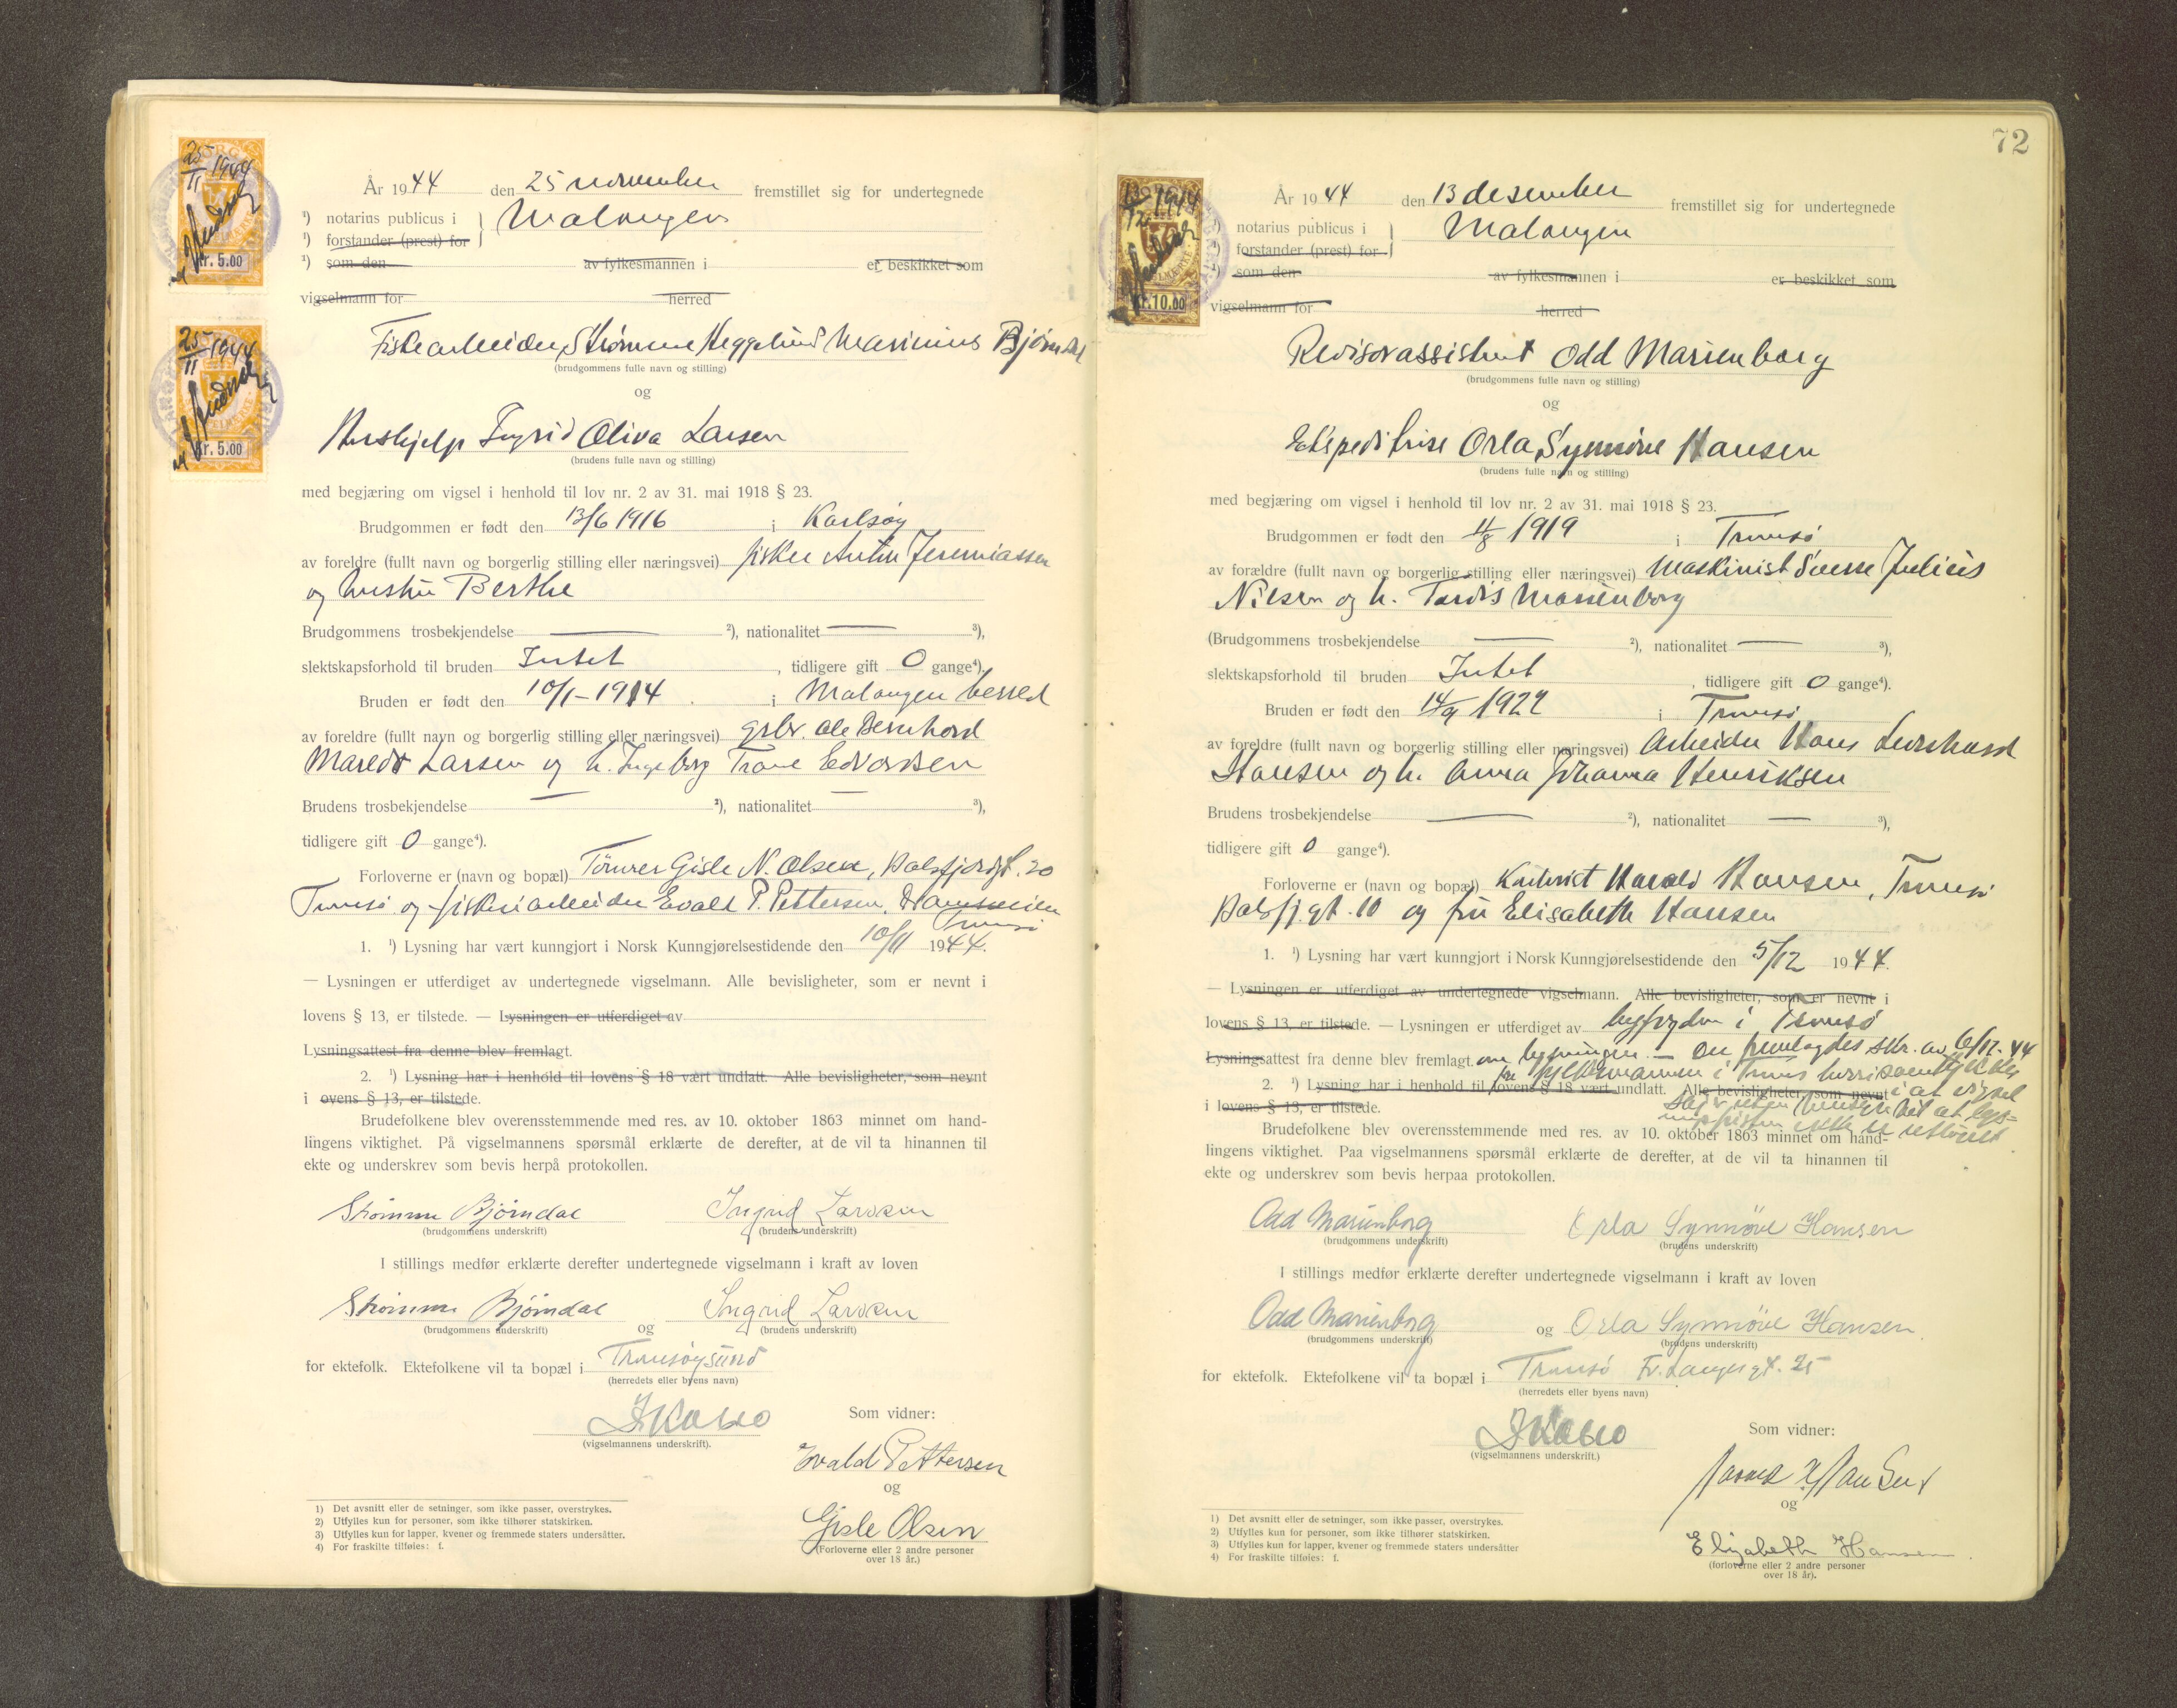 25/11 1944
Kr. 5.00
25/11 1944
Kr. 5.00
År 1944 den 25 november fremstillet sig for undertegnede
¹) notarius publicus i } Malangen
¹) forstander (prest) for
¹) som den av fylkesmannen i er beskikket som
vigselmann for herred
Fiskearbeider Strømme Heggelund Marinius Bjørndal
(brudgommens fulle navn og stilling)
og
Hushjelp Ingrid Oliva Larsen
(brudens fulle navn og stilling)
med begjæring om vigsel i henhold til lov nr. 2 av 31. mai 1918 § 23.
Brudgommen er født den 13/6 1916 i Karlsøy
av foreldre (fullt navn og borgerlig stilling eller næringsvei) fisker Anton Jeremiassen
og hustru Berthe
Brudgommens trosbekjendelse — ²), nationalitet — ³),
slektskapsforhold til bruden Intet , tidligere gift 0 gange⁴).
Bruden er født den 10/1-1914 i Malangen herred
av foreldre (fullt navn og borgerlig stilling eller næringsvei) gbr. Ole Bernhard
Larsen og h. Ingeborg Edvardsen
Brudens trosbekjendelse — ²), nationalitet — ³),
tidligere gift 0 gange⁴).
Forloverne er (navn og bopæl) Tømrer Gisle N. Olsen, Balsfjordgt. 20
Tromsø og fiskeriarbeider Evald P. Pettersen,
Tromsø
1. ¹) Lysning har vært kunngjort i Norsk Kunngjørelsestidende den 10/11 1944.
— Lysningen er utferdiget av undertegnede vigselmann. Alle bevisligheter, som er nevnt i
lovens § 13, er tilstede. — Lysningen er utferdiget av
Lysningsattest fra denne blev fremlagt.
2. ¹) Lysning har i henhold til lovens § 18 vært undlatt. Alle bevisligheter, som nevnt
i ovens § 13, er tilstede.
Brudefolkene blev overensstemmende med res. av 10. oktober 1863 minnet om hand-
lingens viktighet. På vigselmannens spørsmål erklærte de derefter, at de vil ta hinannen til
ekte og underskrev som bevis herpå protokollen.
Strømme Bjørndal Ingrid Larsen
(brudgommens underskrift) (brudens underskrift)
I stillings medfør erklærte derefter undertegnede vigselmann i kraft av loven
Strømme Bjørndal og Ingrid Larsen
(brudgommens underskrift) (brudens underskrift)
for ektefolk. Ektefolkene vil ta bopæl i Tromsøysund
(herredets eller byens navn)
Som vidner:
(vigselmannens underskrift).
Evald Pettersen
og
Gisle Olsen
(Forloverne eller 2 andre personer
over 18 år.)
1) Det avsnitt eller de setninger, som ikke passer, overstrykes.
2) Utfylles kun for personer, som ikke tilhører statskirken.
3) Utfylles kun for lapper, kvener og fremmede staters undersåtter.
4) For fraskilte tilføies: f.
72
13/12 1944
Kr. 10.00
År 1944 den 13 desember fremstillet sig for undertegnede
notarius publicus i } Malangen
forstander (prest) for
¹) som den av fylkesmannen i er beskikket som
vigselmann for herred
Revisorassistent Odd Marienborg
(brudgommens fulle navn og stilling)
og
Ekspeditrise Orla Synnöve Hansen
(brudens fulle navn og stilling)
med begjæring om vigsel i henhold til lov nr. 2 av 31. mai 1918 § 23.
Brudgommen er født den 11/8 1919 i Tromsö
av forældre (fullt navn og borgerlig stilling eller næringsvei) Maskinist Sverre Julius
Nilsen og h. Tordis Marienborg
(Brudgommens trosbekjendelse — ²), nationalitet — ³),
slektskapsforhold til bruden Intet , tidligere gift 0 gange⁴).
Bruden er født den 14/9 1922 i Tromsö
av foreldre (fullt navn og borgerlig stilling eller næringsvei) Arbeider Hans Leonhard
Hansen og h. Anna Johanna Henriksen
Brudens trosbekjendelse — ²), nationalitet — ³),
tidligere gift 0 gange⁴).
Forloverne er (navn og bopæl) Harald Hansen, Tromsö
Balsfj.gt. 10 og fru Elisabeth Hansen
1. ¹) Lysning har vært kunngjort i Norsk Kunngjørelsestidende den 5/12 1944.
— Lysningen er utferdiget av undertegnede vigselmann. Alle bevisligheter, som er nevnt i
lovens § 13, er tilstede. — Lysningen er utferdiget av byfogden i Tromsö
Lysningsattest fra denne blev fremlagt. om lysningen. — Der fremlagdes skr. av 6/12.44
fra fylkesmannen i Troms
2. ¹) Lysning har i henhold til lovens § 18 vært undlatt. Alle bevisligheter, som nevnt i at vigsel
i lovens § 13, er tilstede.
Brudefolkene blev overensstemmende med res. av 10. oktober 1863 minnet om hand-
lingens viktighet. Paa vigselmannens spørsmål erklærte de derefter, at de vil ta hinannen til
ekte og underskrev som bevis herpaa protokollen.
Odd Marienborg Orla Synnöve Hansen
(brudgommens underskrift) (brudens underskrift)
I stillings medfør erklærte derefter undertegnede vigselmann i kraft av loven
Odd Marienborg og Orla Synnöve Hansen
(brudgommens underskrift) (brudens underskrift)
for ektefolk. Ektefolkene vil ta bopæl i Tromsö Fr. Langesgt. 25
(herredets eller byens navn)
Som vidner:
(vigselmannens underskrift.)
Hansen
og
Elisabeth Hansen
(forloverne eller 2 andre personer
over 18 år).
1) Det avsnitt eller de setninger, som ikke passer, overstrykes.
2) Utfylles kun for personer, som ikke tilhører statskirken.
3) Utfylles kun for lapper, kvener og fremmede staters undersåtter
4) For fraskilte tilføies: f.